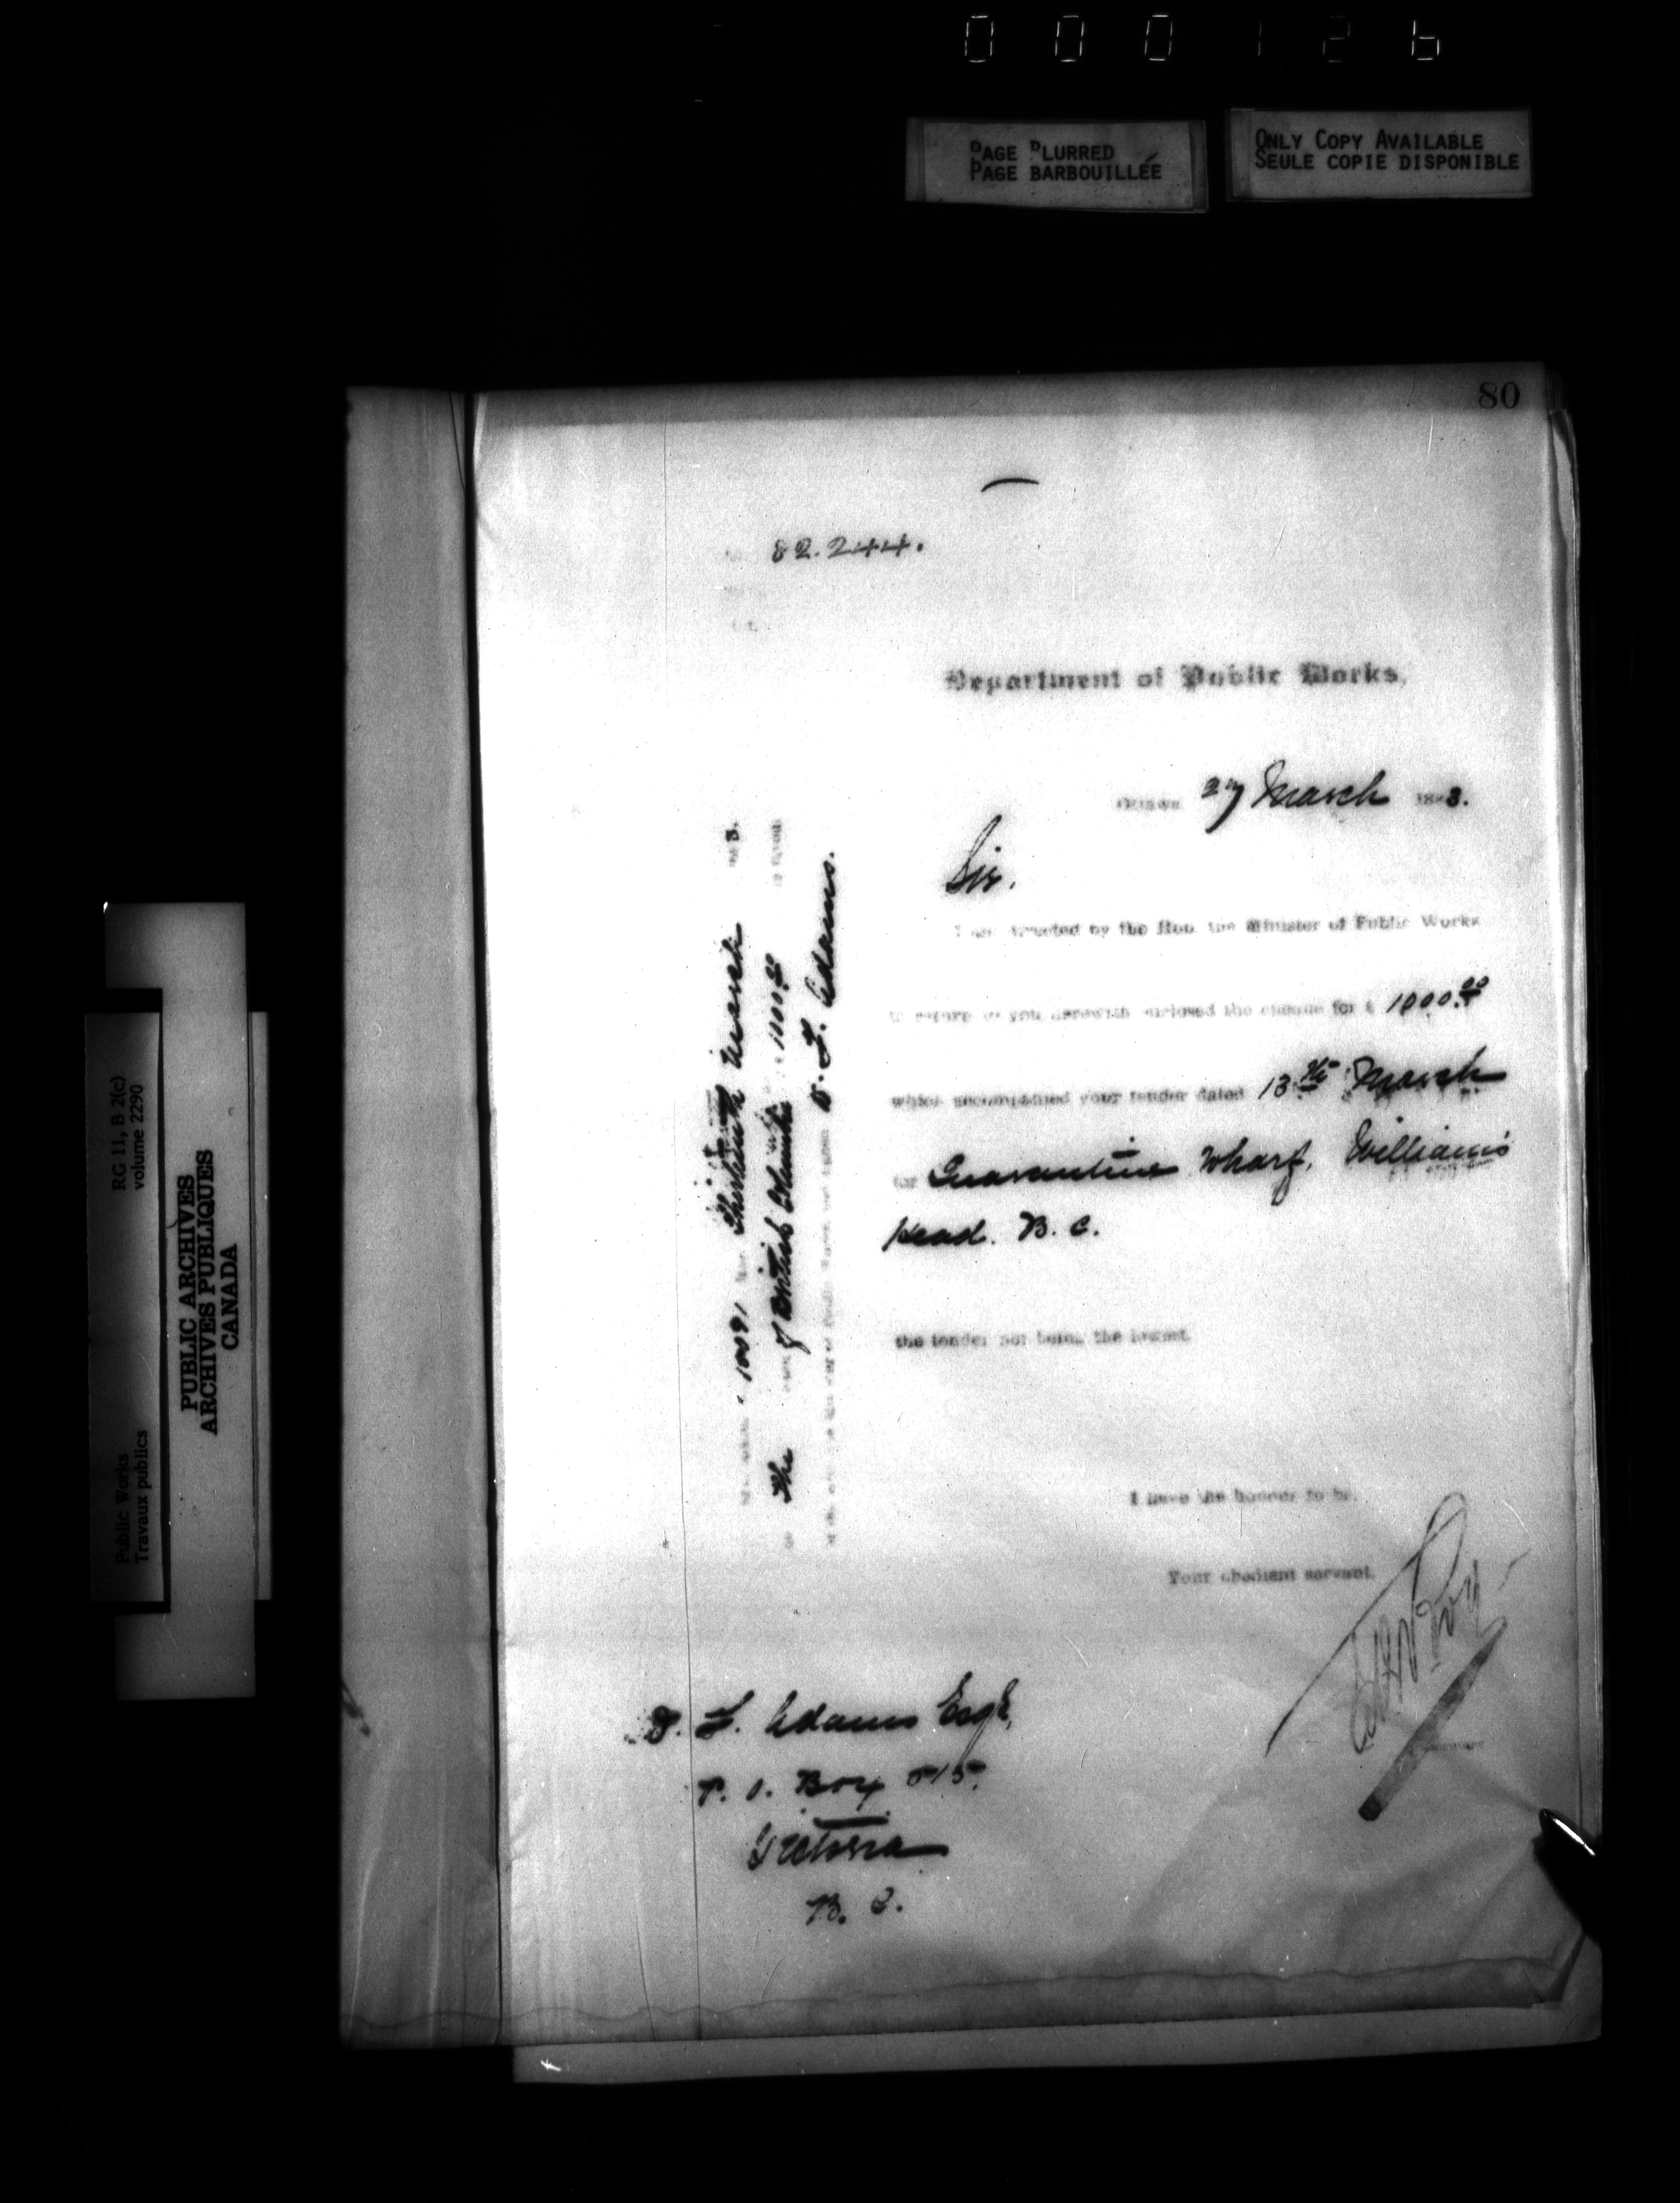 000126
PAGE BLURRED
PAGE BARBOUILLÉE
ONLY COPY AVAILABLE
SEULE COPIE DISPONIBLE
80
82.244.
Department of Public Works,
Ottawa 27 March 3.
Sir.
I am directed by the Hon. the Minister of Public Works
to return to you herewith enclosed the cheque for $ 1000.00
which accompanied your tender dated 13th March
for Quarantine Wharf, William's
Head. B. C.
the tender not being the lowest.
I have the honour to be,
Your obedient servant.
E.F.E. Roy
F. Adams Esqe,
P. O. Box 515.
Victoria
B. C.
Thirteenth March 3.
The of British Columbia 1000.00
F. Adams.
RG 11, B 2(c)
volume 2290
Public Works
Travaux publics
PUBLIC ARCHIVES
ARCHIVES PUBLIQUES
CANADA